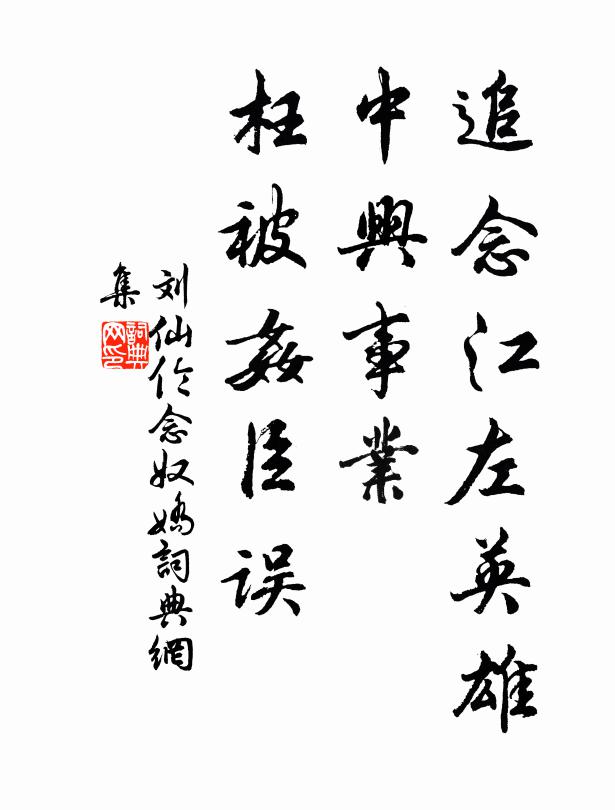 追念江左英雄
中興事業
枉被姦臣误
刘仙伦念奴嬌詞典網
集
詞典網印